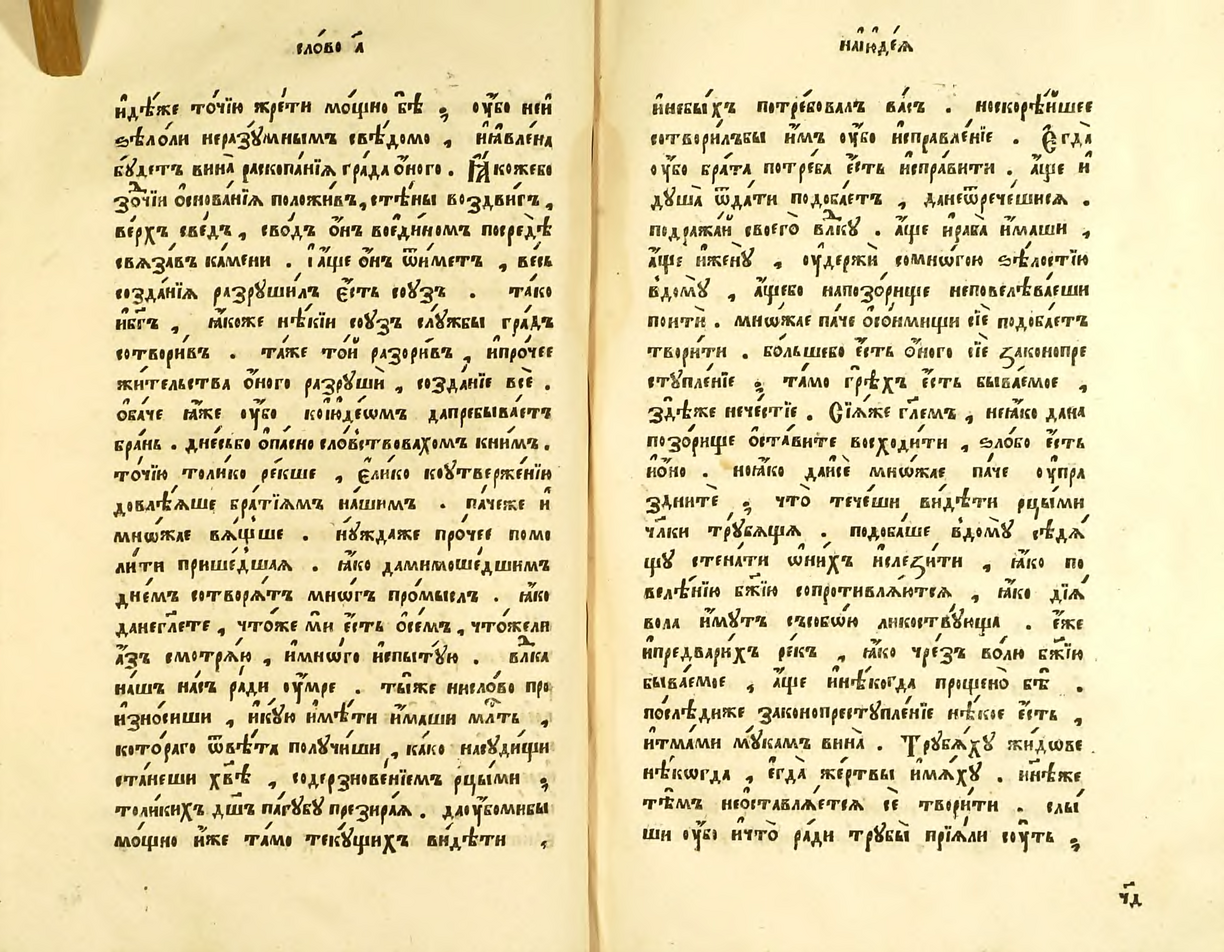 сло́во а҃
и҆дѣ́же то́чїю жре́ти мо́щно бѣ̀ ; оу҆́бо неи̑
ѕѣ́лоли неразꙋ́мнымъ свѣ́домо , ꙗ҆́влена
бꙋ́детъ вина̀ раскопа́нїѧ гра́да о҆́ного . Ꙗ҆́кожебо
зо́дчїи ѻ҆снова́нїѧ положи́въ , стѣ́ны воздви́гъ ,
ве́рхъ све́дъ , сво́дъ о҆́нъ воеди́номъ посредѣ̀
свѧза́въ ка́мени . і҆а҆́ще о҆́нъ ѿи́метъ , ве́сь
созда́нїѧ разрꙋши́лъ є҆́сть соу́зъ . та́ко
и҆бг҃ъ , ꙗ҆́коже нѣ́кїи соу́зъ слꙋ́жбы гра́дъ
сотвори́въ . та́же то́й разори́въ , и҆про́чее
жи́тельства о҆́ного разрꙋшѝ , созда́нїе всѐ .
ѻ҆ба́че ꙗ҆́же оу҆́бо коі҆юде́ѡмъ дапребыва́етъ
бра́нь . дне́сьбо ѻ҆па́сно сло́вствовахомъ кни́мъ .
то́чїю толи́ко ре́кше , є҆ли́ко коу҆твержє́нїю
довлѣ́ѧше бра́тїѧмъ на́шимъ . па́чеже и҆
мно́жае вѧ́щьше . нꙋ́ждаже про́чее помо
ли́ти прише́дшаѧ . ꙗ҆́ко дамимоше́дшимъ
дне́мъ сотворѧ́тъ мно́гъ про́мыслъ . ꙗ҆́ко
данегл҃ете , что́же мѝ є҆́сть ѻ҆се́мъ , что́жели
а҆́зъ смотрѧ́ю , и҆мно́го и҆спытꙋ́ю . влⷣка
на́шъ на́съ ра́ди оу҆́мре . ты́же нисло́во про
и҆зно́сиши , и҆кꙋ́ю и҆мѣ́ти и҆́маши млⷭ҇ть ,
кото́раго ѿвѣ́та полꙋчи́ши , ка́ко насꙋди́щи
ста́неши хв҃ѣ , содерзнове́нїемъ рцы́ми ;
толи́кихъ дш҃ъ па́гꙋбꙋ презира́ѧ . даоу҆́бомибы
мо́щно и҆́же та́мо текꙋ́щихъ ви́дѣти ,
наі҆юде́ѧ
и҆небы́хъ потре́бовалъ ва́съ . носкорѣ́йшее
сотвори́лъбы и҆́мъ оу҆́бо и҆справле́нїе . Є҆гда̀
оу҆́бо бра́та потре́ба є҆́сть и҆спра́вити . а҆́ще и҆
дꙋ́ша ѿда́ти подоба́етъ , данеѿрече́шисѧ .
подража́й своего̀ влⷣкꙋ . а҆́ще и҆раба̀ и҆́маши ,
а҆́ще и҆женꙋ̀ , оу҆держѝ сомно́гою ѕѣ́лостїю
в̾домꙋ̀ , а҆́щебо напозо́рище неповелѣва́еши
пои́ти . мно́жае па́че ѻ҆со́нмищи сїѐ подоба́етъ
твори́ти . бо́льшебо є҆́сть о҆́ного сїѐ законопре
стꙋпле́нїе ; та́мо грѣ́хъ є҆́сть быва́емое ,
здѣ́же нече́стїе . Сїѧ́же гл҃емъ , неꙗ҆́ко дана
позо́рище ѻ҆ста́вите восходи́ти , ѕло́бо є҆́сть
и҆о҆́но . ноꙗ҆́ко даисѐ мно́жае па́че оу҆пра
здни́те ; что̀ тече́ши ви́дѣти рцы́ми
чл҃ки трꙋбѧ́щїѧ . подоба́ше в̾домꙋ̀ сѣдѧ́
щꙋ стена́ти ѡ҆ни́хъ и҆слези́ти , ꙗ҆́ко по
велѣ́нїю бж҃їю сопротивлѧ́ютсѧ , ꙗ҆́ко дїѧ́
вола и҆́мꙋтъ съсобо́ю ликоствꙋ́юща . є҆́же
и҆предвари́хъ ре́къ , ꙗ҆́ко чре́зъ во́лю бж҃їю
быва́емое , а҆́ще и҆нѣ́когда проще́но бѣ̀ .
послѣди́же законопрестꙋпле́нїе нѣ́кое є҆́сть ,
и҆тма́ми мꙋ́камъ вина̀ . Трꙋбѧ́хꙋ жи́дове
нѣ́когда , є҆гда̀ же́ртвы и҆мѧ́хꙋ . нн҃ѣже
тѣ́мъ неѡ҆ставлѧ́етсѧ сѐ твори́ти . слы́
ши оу҆́бо и҆что̀ ра́ди трꙋбы̀ прїѧ́ли соу́ть ;
ч҃д